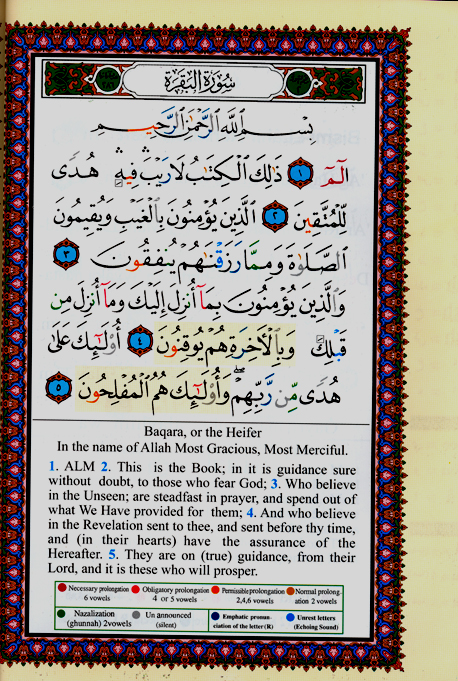 سُورَةُ الْبَقَرَةِ
بِسْمِ اللَّهِ الرَّحْمَٰنِ الرَّحِيمِ
الٓمٓ ١ ذَٰلِكَ الْكِتَابُ لَا رَيْبَ ۛ فِيهِ ۛ هُدًى
لِّلْمُتَّقِينَ ٢ الَّذِينَ يُؤْمِنُونَ بِالْغَيْبِ وَيُقِيمُونَ
الصَّلَوٰةَ وَمِمَّا رَزَقْنَٰهُمْ يُنفِقُونَ ٣
وَالَّذِينَ يُؤْمِنُونَ بِمَآ أُنزِلَ إِلَيْكَ وَمَآ أُنزِلَ مِن
قَبْلِكَ وَبِالْآخِرَةِ هُمْ يُوقِنُونَ ٤ أُو۟لَٰٓئِكَ عَلَىٰ
هُدًى مِّن رَّبِّهِمْ ۖ وَأُو۟لَٰٓئِكَ هُمُ الْمُفْلِحُونَ ٥
Baqara, or the Heifer
In the name of Allah Most Gracious, Most Merciful.
1. ALM 2. This is the Book; in it is guidance sure
without doubt, to those who fear God; 3. Who believe
in the Unseen; are steadfast in prayer, and spend out of
what We Have provided for them; 4. And who believe
in the Revelation sent to thee, and sent before thy time,
and (in their hearts) have the assurance of the
Hereafter. 5. They are on (true) guidance, from their
Lord, and it is these who will prosper.
Necessary prolongation 6 vowels
Obligatory prolongation 4 or 5 vowels
Permissible prolongation 2,4,6 vowels
Normal prolongation 2 vowels
Nazalization (ghunnah) 2vowels
Un announced (silent)
Emphatic pronunciation of the letter (R)
Unrest letters (Echoing Sound)